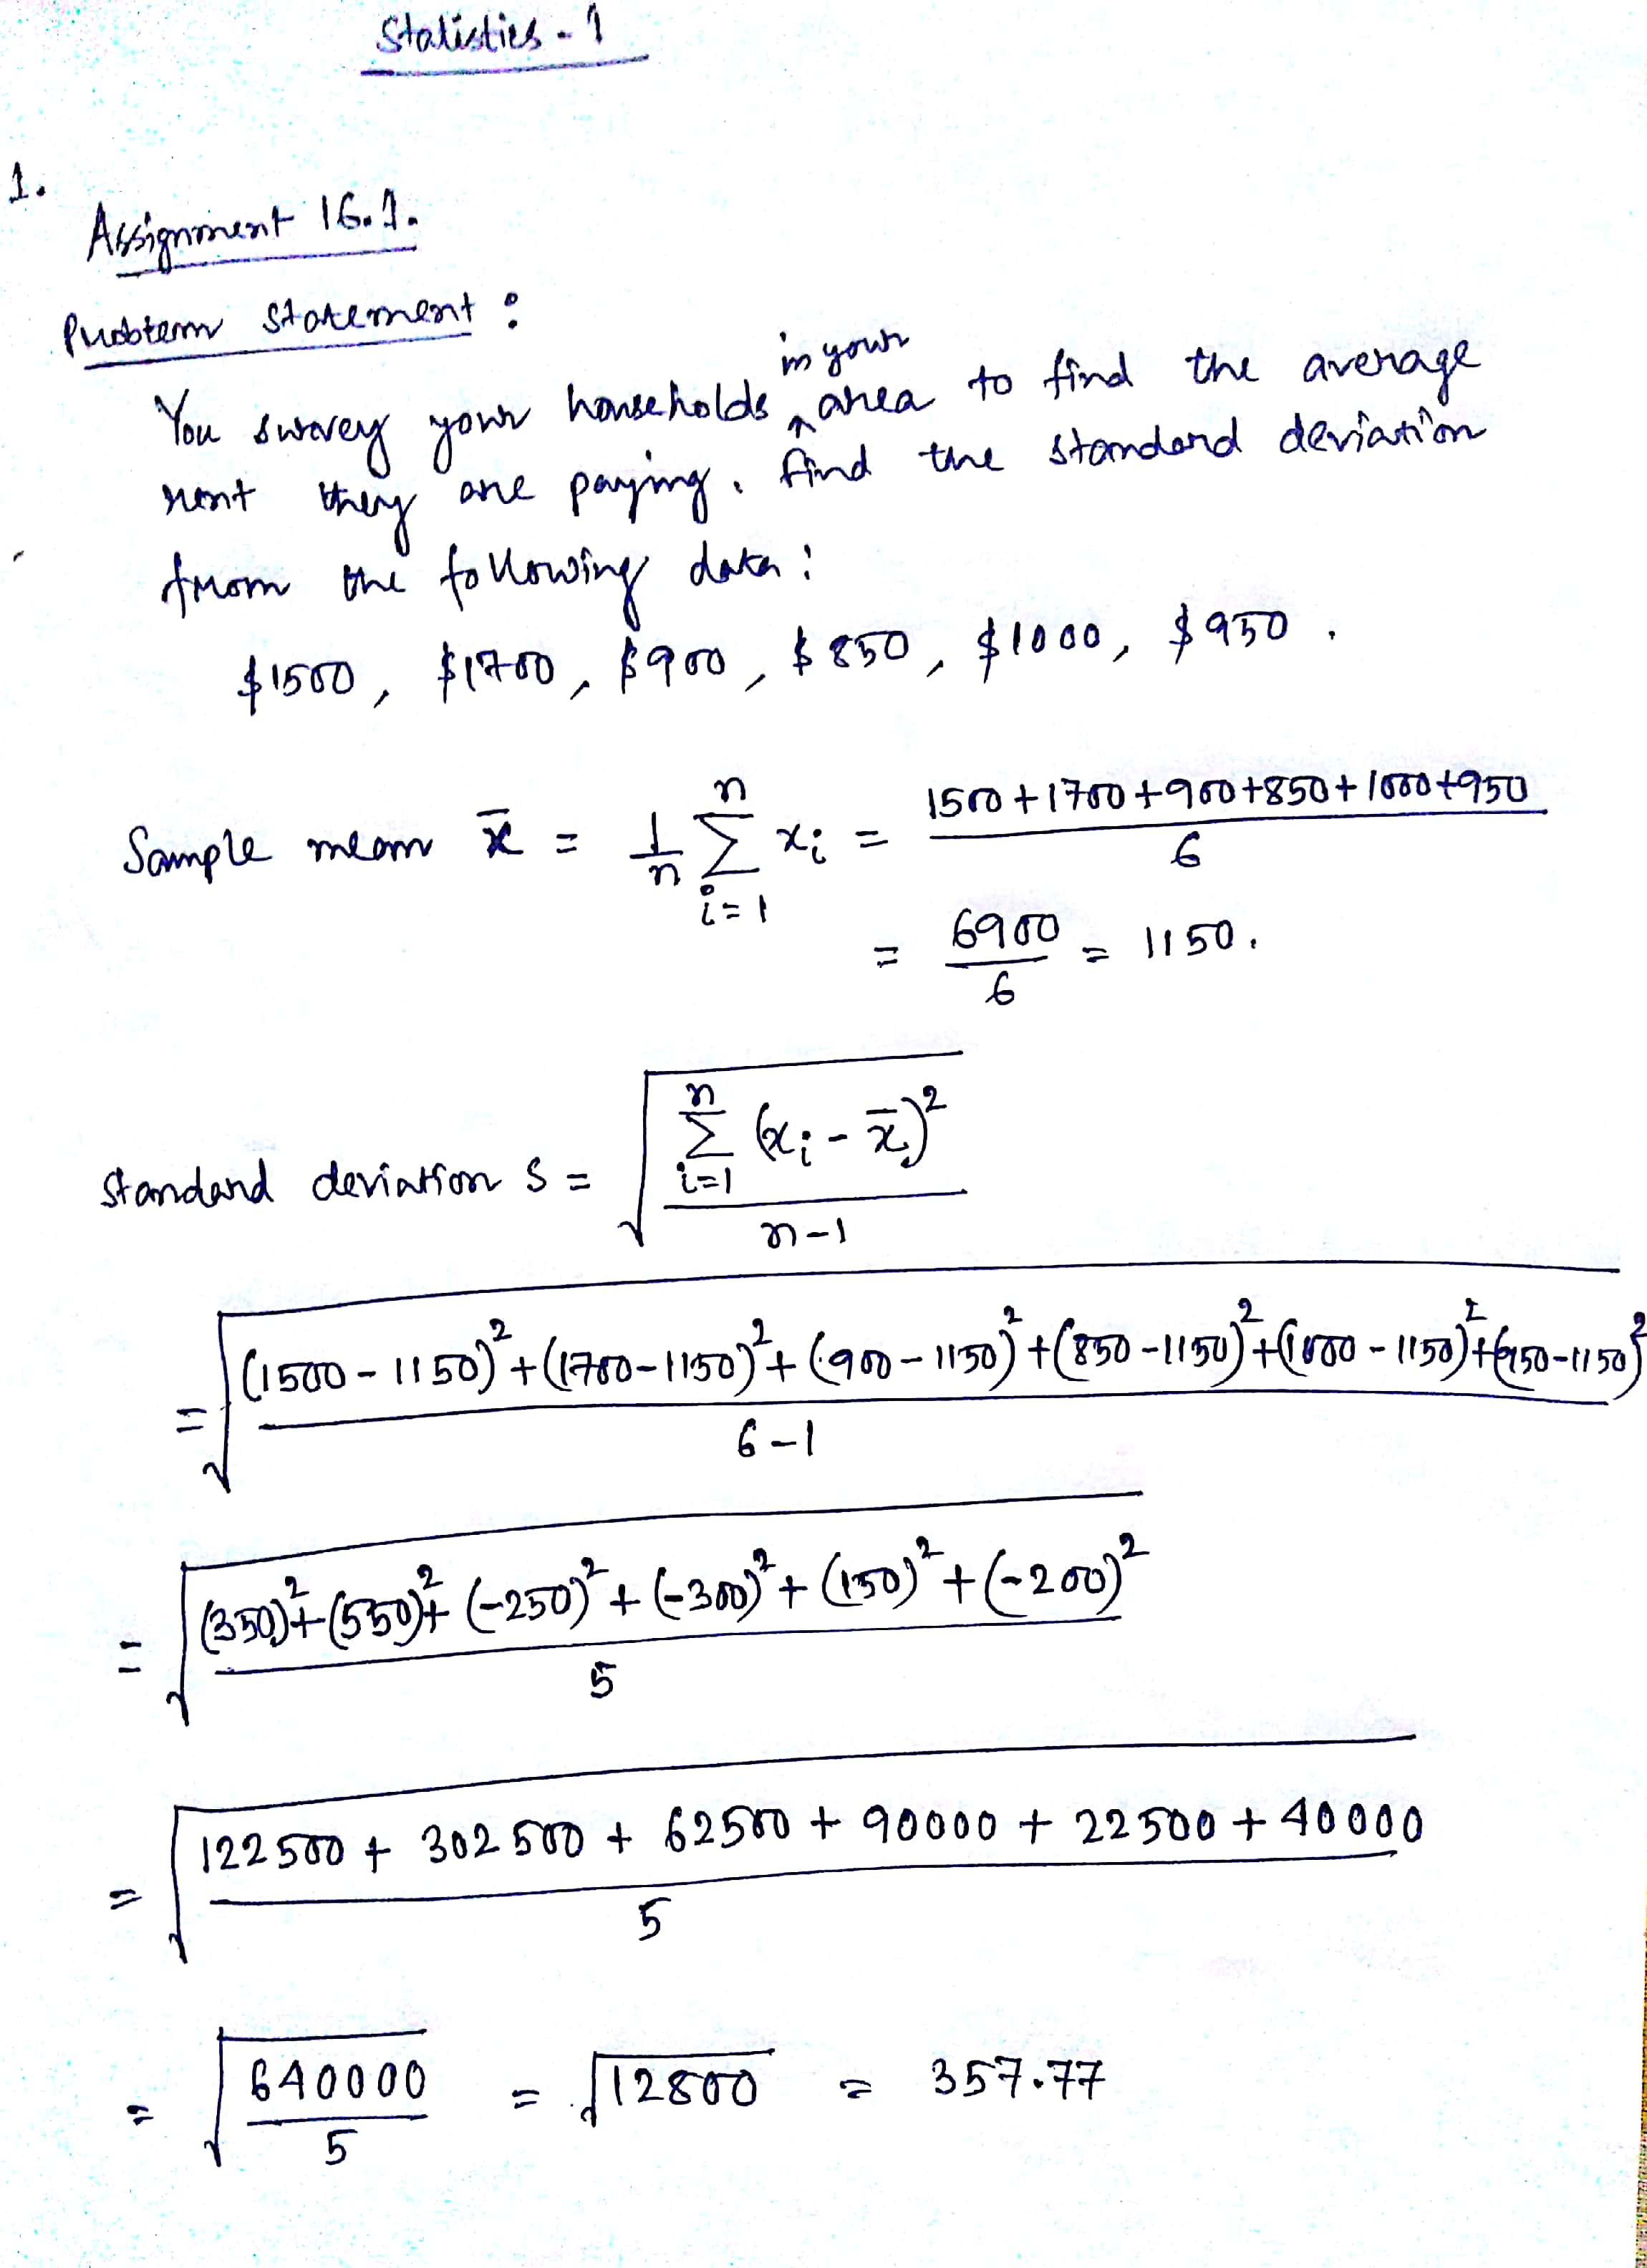 Statistics - 1
1.
Assignment 16.1.
Problem statement :
You survey your households in your area to find the average
rent they are paying. find the standard deviation
from the following data:
$1500, $1700, $900, $850, $1000, $950.
Sample mean x̄ = 1/n Σ_{i=1}^{n} x_i = (1500+1700+900+850+1000+950)/6
= 6900/6 = 1150.
Standard deviation S = √(Σ_{i=1}^{n} (x_i - x̄)² / (n-1))
= √(((1500-1150)²+(1700-1150)²+(900-1150)²+(850-1150)²+(1000-1150)²+(950-1150)²)/(6-1))
= √(((350)²+(550)²+(-250)²+(-300)²+(150)²+(-200)²)/5)
= √((122500+302500+62500+90000+22500+40000)/5)
= √(640000/5) = √12800 = 357.77